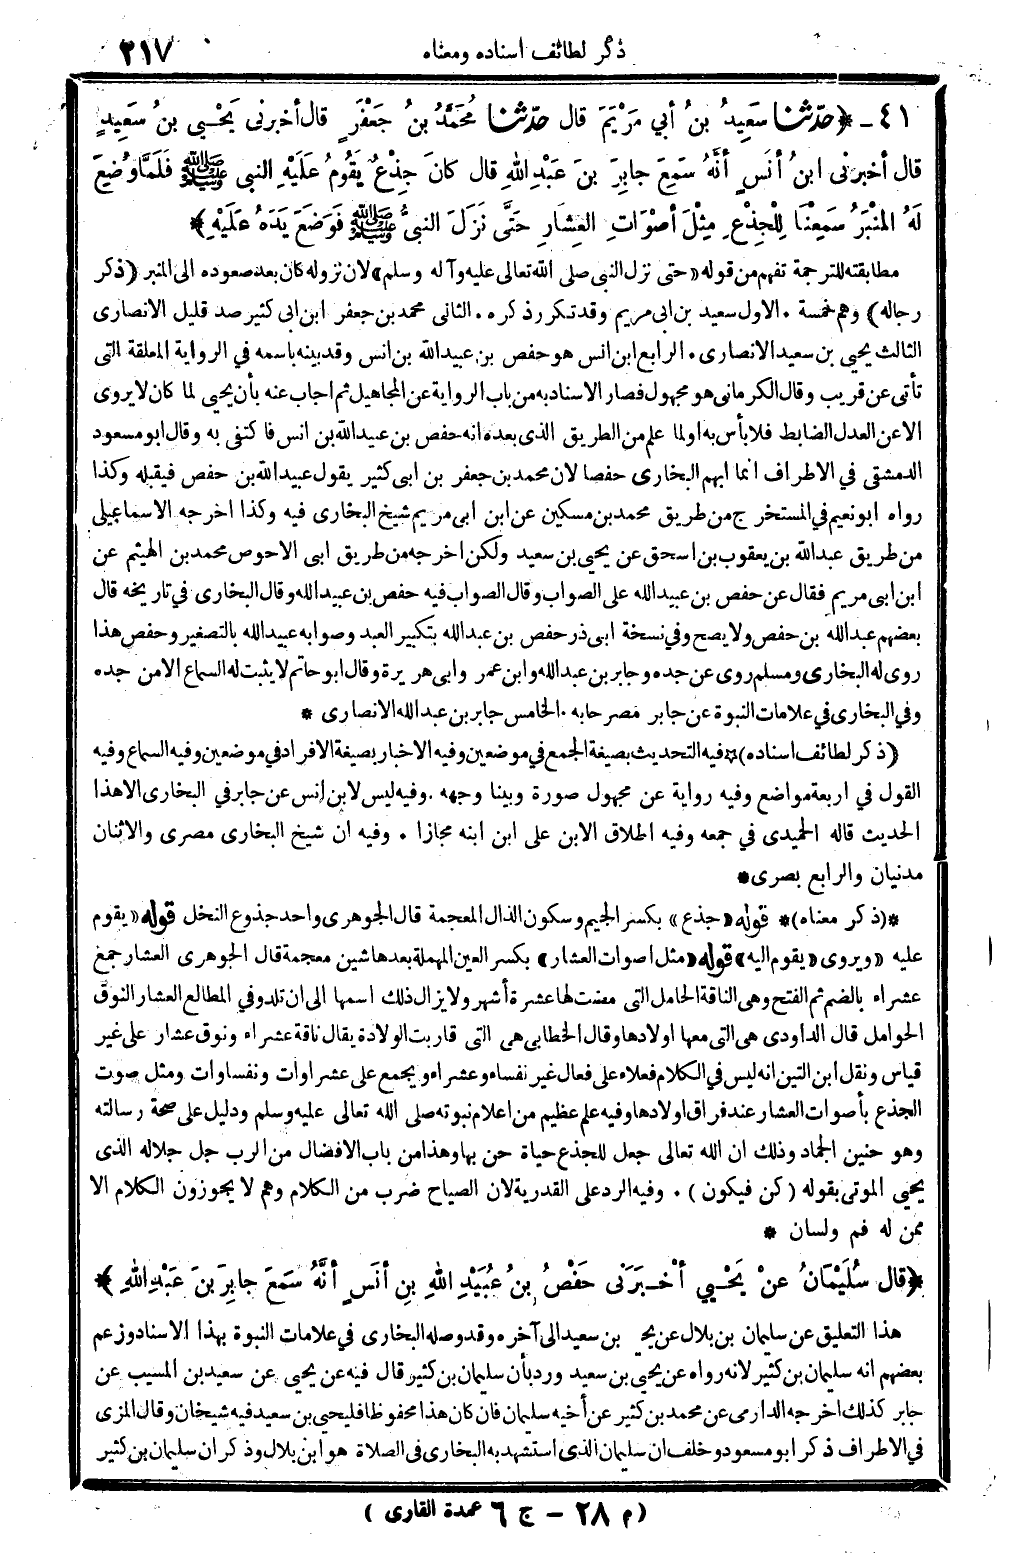 ذكر لطائف اسناده ومعناه ٢١٧
٤١ - ﴿حدثنا سَعِيدُ بنُ أبي مَرْيَمَ قال حدثنا مُحَمَّدُ بنُ جَعْفَرٍ قال أخبرنى يَحْيى بنُ سَعِيدٍ
قال أخبرنى ابنُ أنَسٍ أنَّهُ سَمِعَ جابِرَ بنَ عَبْدِ اللهِ قال كانَ جِذْعٌ يَقُومُ عَلَيْهِ النبى ﷺ فَلَمَّا وُضِعَ
لَهُ المِنْبَرُ سَمِعْنَا لِلْجِذْعِ مِثْلَ أصْوَاتِ العِشَارِ حَتَّى نَزَلَ النبىُّ ﷺ فَوَضَعَ يَدَهُ عَلَيْهِ﴾
مطابقته للترجمة تفهم من قوله «حتى نزل النبى صلى الله تعالى عليه وآله وسلم» لان نزوله كان بعد صعوده الى المنبر (ذكر
رجاله) وهم خمسة . الاول سعيد بن ابى مريم وقد تكرر ذكره . الثانى محمد بن جعفر ابن ابى كثير ضد قليل الانصارى
الثالث يحيى بن سعيد الانصارى . الرابع ابن انس هو حفص بن عبيد الله بن انس وقد بينه باسمه في الرواية المعلقة التى
تأتى عن قريب وقال الكرمانى هو مجهول فصار الاسناد به من باب الرواية عن المجاهيل ثم اجاب عنه بأن يحيى لما كان لا يروى
الا عن العدل الضابط فلا بأس به او لما علم من الطريق الذى بعده انه حفص بن عبيد الله بن انس فاكتفى به وقال ابو مسعود
الدمشقى في الاطراف انما ابهم البخارى حفصا لان محمد بن جعفر بن ابى كثير يقول عبيد الله بن حفص فيقبله وكذا
رواه ابو نعيم في المستخرج من طريق محمد بن مسكين عن ابن ابى مريم شيخ البخارى فيه وكذا اخرجه الاسماعيلى
من طريق عبد الله بن يعقوب بن اسحق عن يحيى بن سعيد ولكن اخرجه من طريق ابى الاحوص محمد بن الهيثم عن
ابن ابى مريم فقال عن حفص بن عبيد الله على الصواب وقال الصواب فيه حفص بن عبيد الله وقال البخارى في تاريخه قال
بعضهم عبد الله بن حفص ولا يصح وفي نسخة ابى ذر حفص بن عبد الله بتكبير العبد وصوابه عبيد الله بالتصغير وحفص هذا
روى له البخارى ومسلم روى عن جده وجابر بن عبد الله وابن عمر وابى هريرة وقال ابو حاتم لا يثبت له السماع الا من جده
وفي البخارى في علامات النبوة عن جابر مصرحا به . الخامس جابر بن عبد الله الانصارى *
(ذكر لطائف اسناده)* فيه التحديث بصيغة الجمع في موضعين وفيه الاخبار بصيغة الافراد في موضعين وفيه السماع وفيه
القول في اربعة مواضع وفيه رواية عن مجهول صورة وبينا وجهه . وفيه ليس لابن انس عن جابر في البخارى الا هذا
الحديث قاله الحميدى في جمعه وفيه اطلاق الابن على ابن ابنه مجازا . وفيه ان شيخ البخارى مصرى والاثنان
مدنيان والرابع بصرى *
*(ذكر معناه)* قوله «جذع» بكسر الجيم وسكون الذال المعجمة قال الجوهرى واحد جذوع النخل قوله «يقوم
عليه» ويروى «يقوم اليه» قوله «مثل اصوات العشار» بكسر العين المهملة بعدها شين معجمة قال الجوهرى العشار جمع
عشراء بالضم ثم الفتح وهى الناقة الحامل التى مضت لها عشرة أشهر ولا يزال ذلك اسمها الى ان تلد وفي المطالع العشار النوق
الحوامل قال الداودى هى التى معها اولادها وقال الخطابى هى التى قاربت الولادة يقال ناقة عشراء ونوق عشار على غير
قياس ونقل ابن التين انه ليس في الكلام فعلاء على فعال غير نفساء وعشراء ويجمع على عشراوات ونفساوات ومثل صوت
الجذع بأصوات العشار عند فراق اولادها وفيه علم عظيم من اعلام نبوته صلى الله تعالى عليه وسلم ودليل على صحة رسالته
وهو حنين الجماد وذلك ان الله تعالى جعل للجذع حياة حن بها وهذا من باب الافضال من الرب جل جلاله الذى
يحيى الموتى بقوله (كن فيكون) . وفيه الرد على القدرية لان الصياح ضرب من الكلام وهم لا يجوزون الكلام الا
ممن له فم ولسان *
﴿قال سُلَيْمَانُ عنْ يَحْيي أخْبَرَنى حَفْصُ بنُ عُبَيْدِ اللهِ بنِ أنَسٍ أنَّهُ سَمِعَ جابِرَ بنَ عَبْدِ اللهِ﴾
هذا التعليق عن سليمان بن بلال عن يحيـ بن سعيد الى آخره وقد وصله البخارى في علامات النبوة بهذا الاسناد وزعم
بعضهم انه سليمان بن كثير لانه رواه عن يحيى بن سعيد ورد بأن سليمان بن كثير قال فيه عن يحيى عن سعيد بن المسيب عن
جابر كذلك اخرجه الدارمى عن محمد بن كثير عن أخيه سليمان فان كان هذا محفوظا فليحيى بن سعيد فيه شيخان وقال المزى
في الاطراف ذكر ابو مسعود وخلف ان سليمان الذى استشهد به البخارى فى الصلاة هو ابن بلال وذكر ان سليمان بن كثير
(م ٢٨ - ج ٦ عمدة القارى)